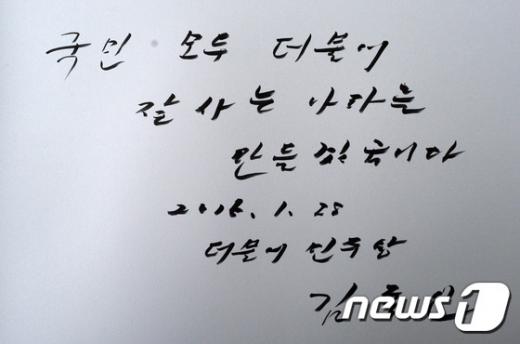 국민 모두 더불어
잘 사는 나라를
만들 것 입니다
2016. 1. 28
더불어 민주당
김
news1